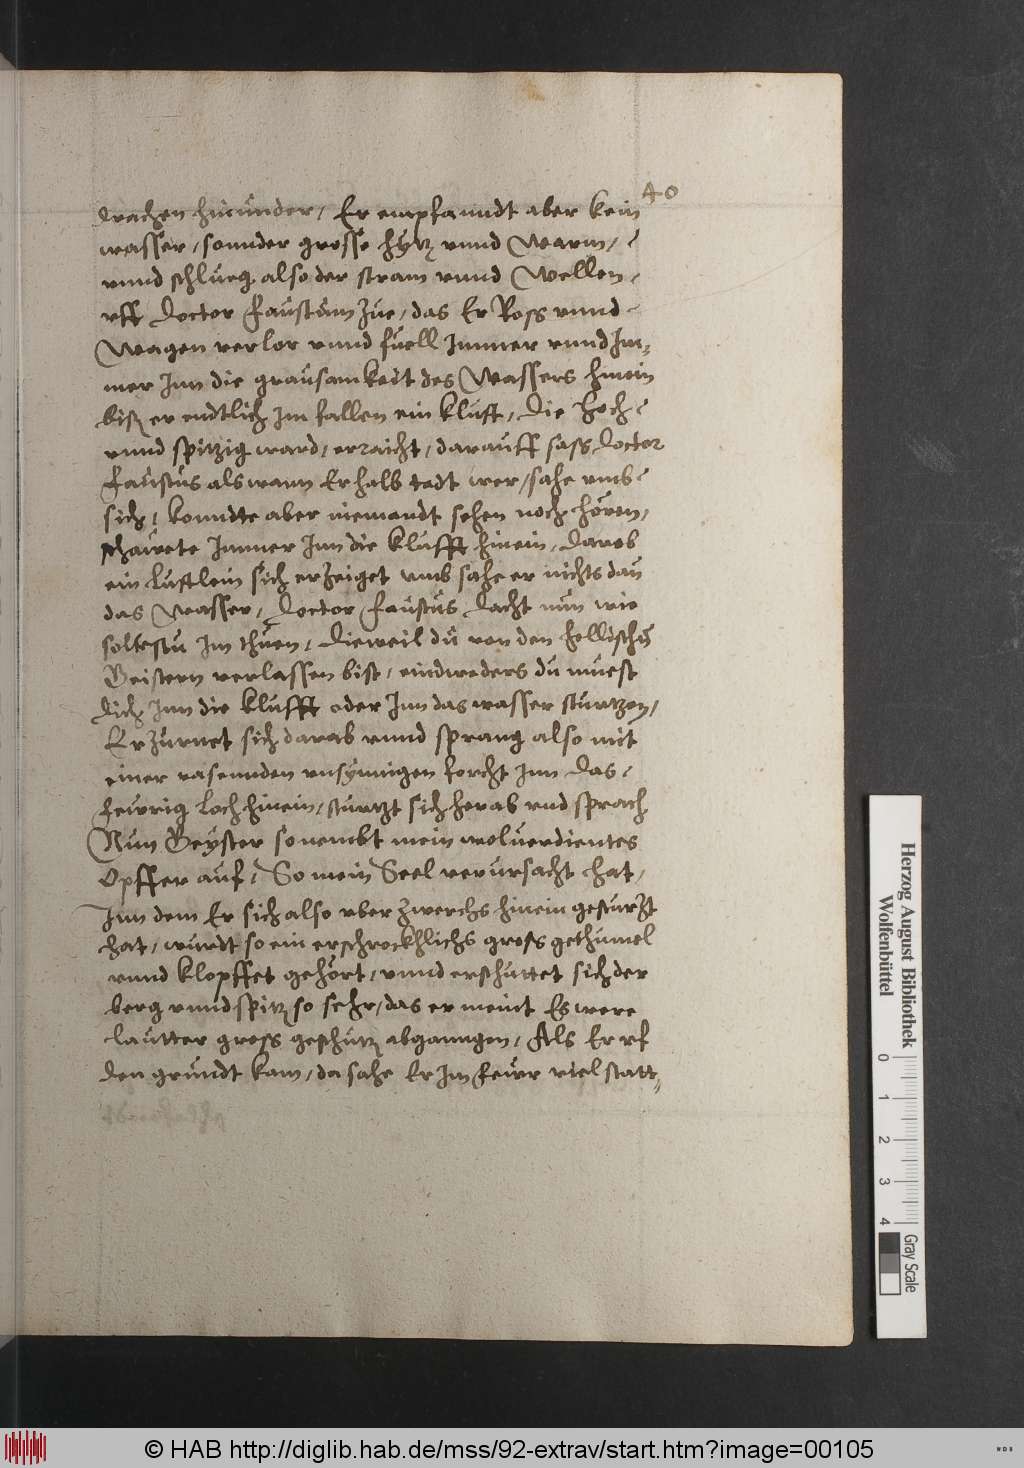 40
drachen hinunder, Er empfanndt aber kein
wasser, sonnder grosse hytz vnnd Warm,
vnnd schlueg also der stram vnnd Wellen
vff doctor Faustum zue, das Er Ross vnnd
Wagen verlor vnnd fuell Immer vnnd Im-
mer Inn die grausamkeit des Wassers hinein
biß er endtlich Im fallen ein klufft, die hoch
vnnd spitzig ward, erraicht, darauff sass doctor
Faustus als wann Er halb todt wer, sahe vmb
sich, konndte aber niemandt sehen noch hören,
schawete Immer Inn die klufft hinein, darob
ein luftlein sich erzeiget vmb sahe er nichts dan
das Wasser, doctor Faustus dacht nun wie
soltestu Im thuen, dieweil du von den hellischen
Geistern verlassen bist, eindweders du muest
dich Inn die klufft oder Inn das wasser sturtzen,
Er zurnet sich darab vnnd sprang also mit
einer rasennden vnsynnigen forcht Inn das
fewrig loch hinein, sturtzt sich herab vnd sprach
Nun Geyster so nembt mein wolverdientes
Opffer auf, So mein Seel verursacht hat,
Inn dem Er sich also vber zwerchs hinein gesturzt
hat, wurdt so ein erschrockhlichs gross gethumel
vnnd klopffet gehört, vnnd erschuttet sich der
berg vnnd spitz so sehr, das er meint Es were
lautter gross geschutz abganngen, Als Er vf
den grundt kam, da sahe Er Im fewr viel statt-
Herzog August Bibliothek
Wolfenbüttel
0 1 2 3 4
Gray Scale
© HAB http://diglib.hab.de/mss/92-extrav/start.htm?image=00105
WDB